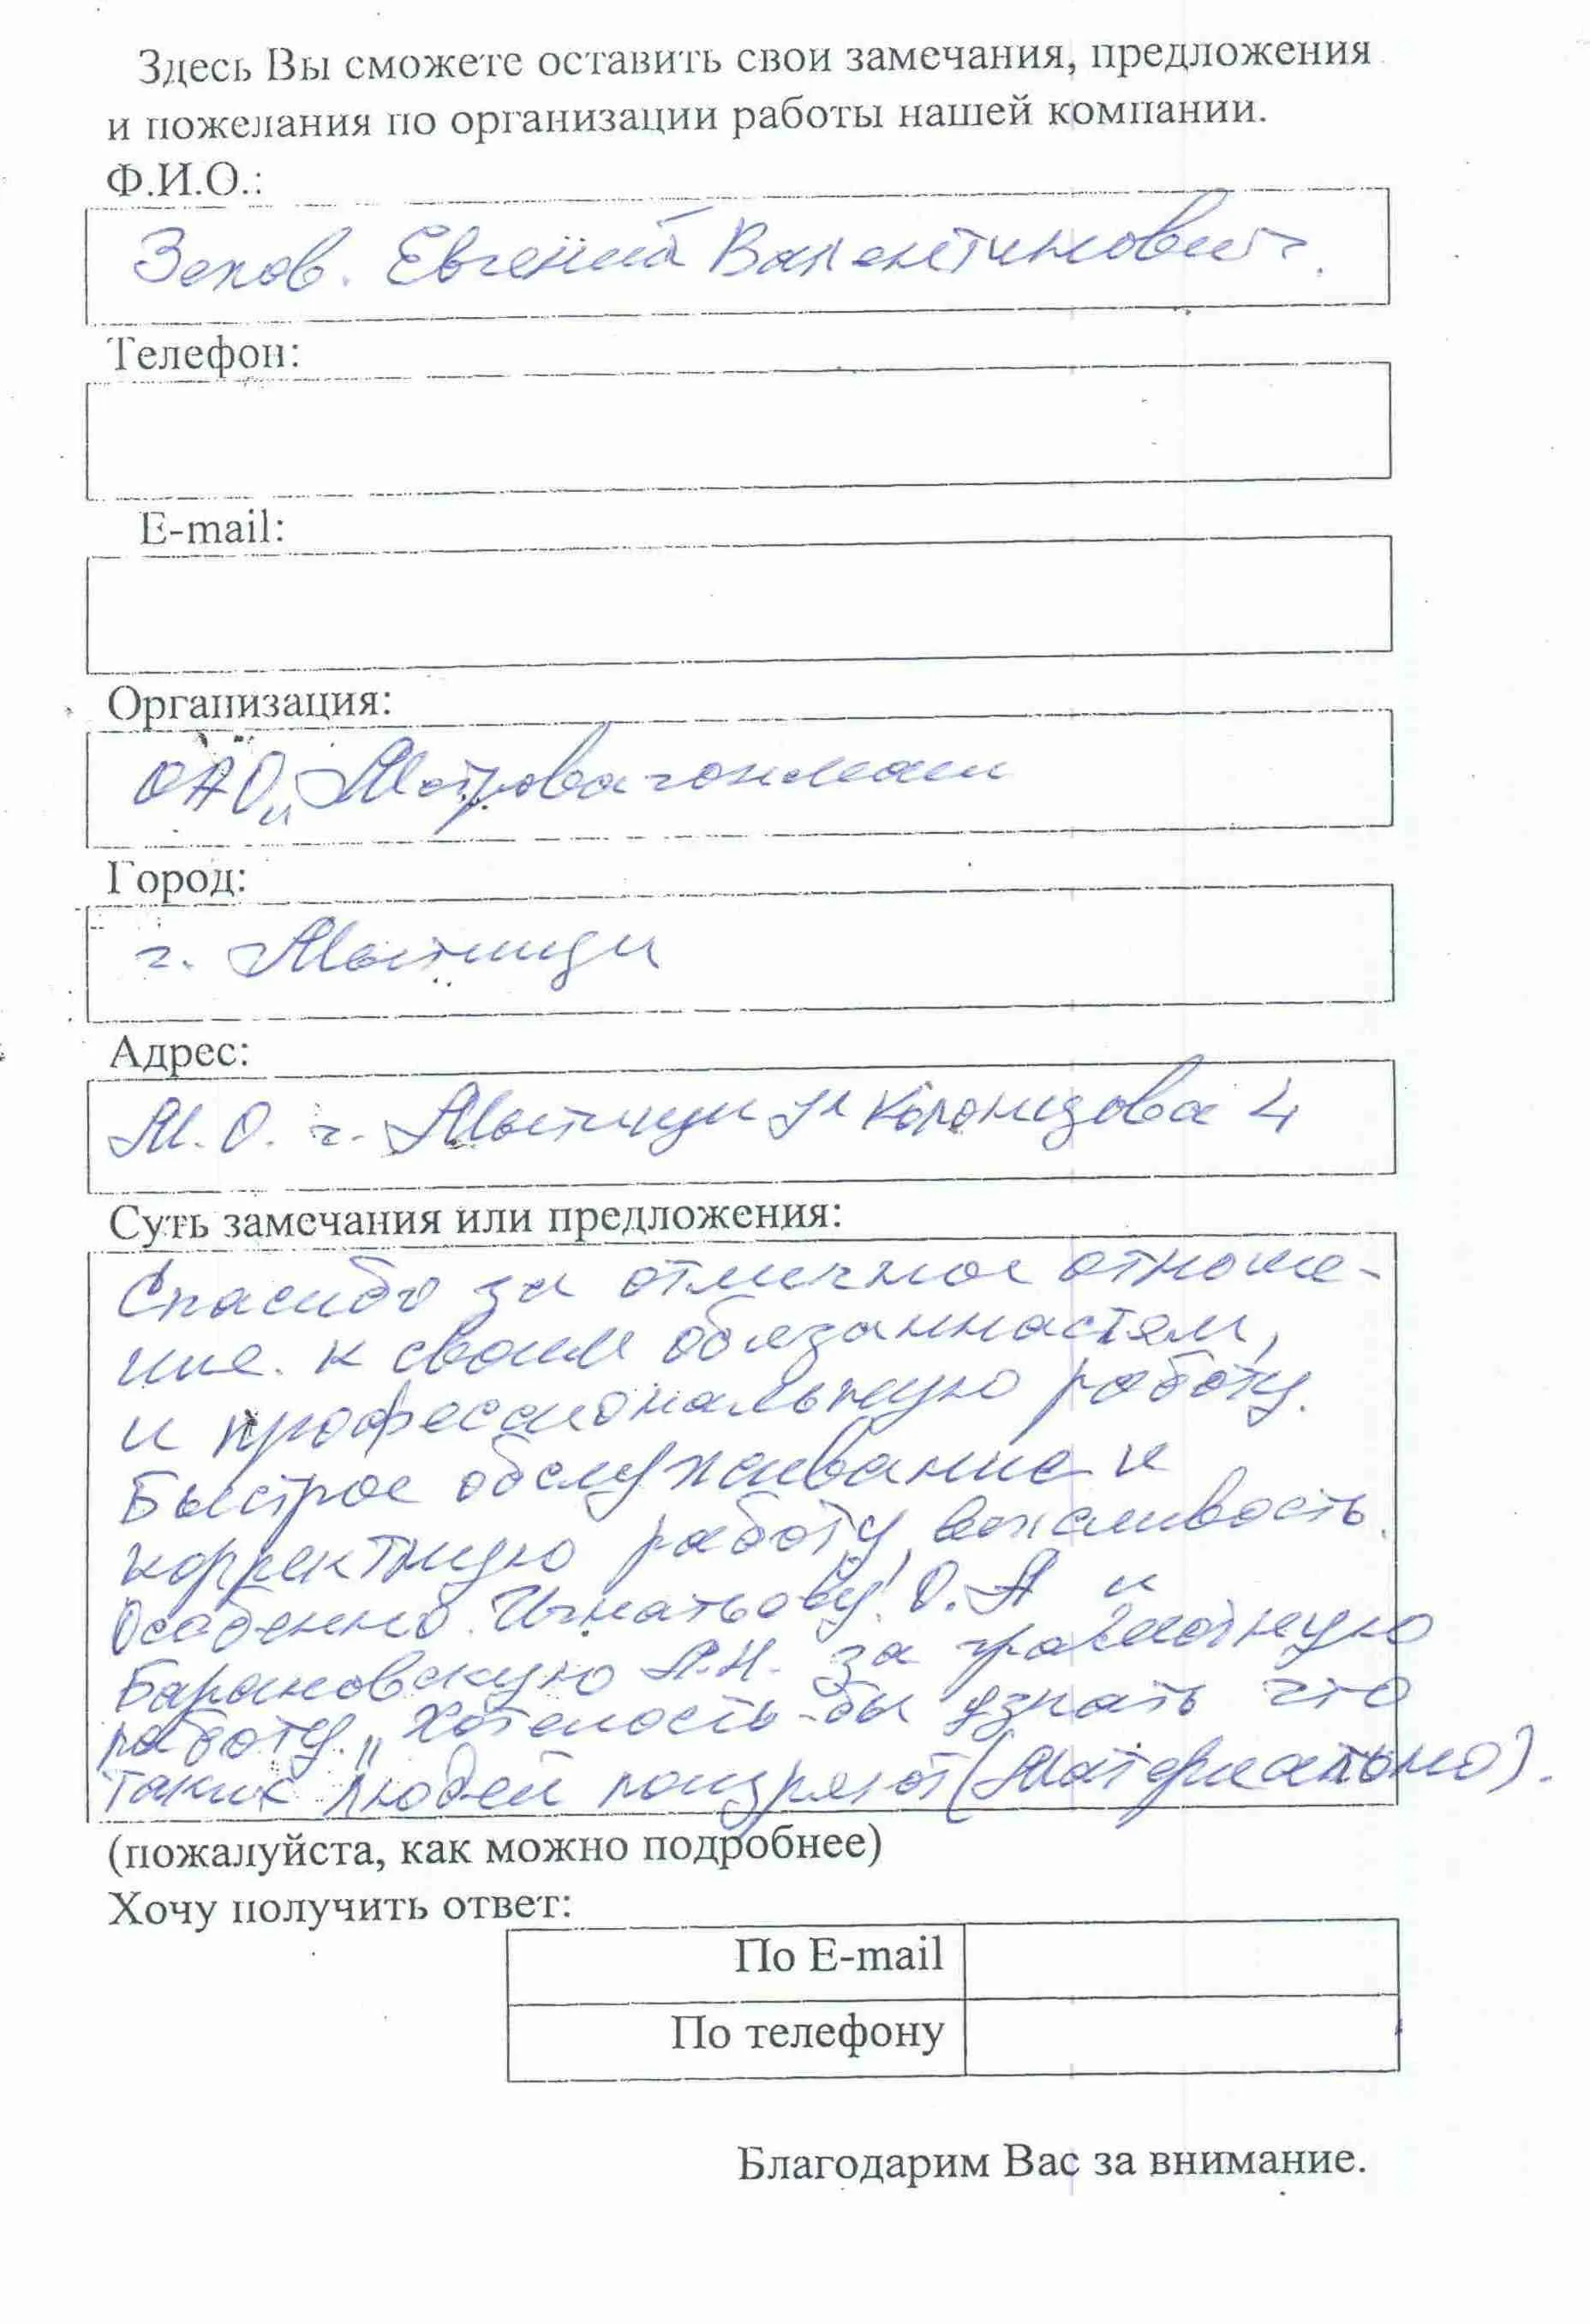 Здесь Вы сможете оставить свои замечания, предложения
и пожелания по организации работы нашей компании.
Ф.И.О.:
Зохов. Евгений Валентинович.
Телефон:
E-mail:
Организация:
ОАО „Метровагонмаш
Город:
г. Мытищи
Адрес:
М.О. г. Мытищи ул Колонцова 4
Суть замечания или предложения:
Спасибо за отличное отноше-
ние. к своим обязанностям,
и профессиональную работу.
Быстрое обслуживание и
корректную работу, вежливость.
Особенно. Игнатьову О.А и
Барановскую А.Н. за грамотную
работу. „Хотелость-бы узнать что
таких людей поизряют (Материально).
(пожалуйста, как можно подробнее)
Хочу получить ответ:
По E-mail
По телефону
Благодарим Вас за внимание.